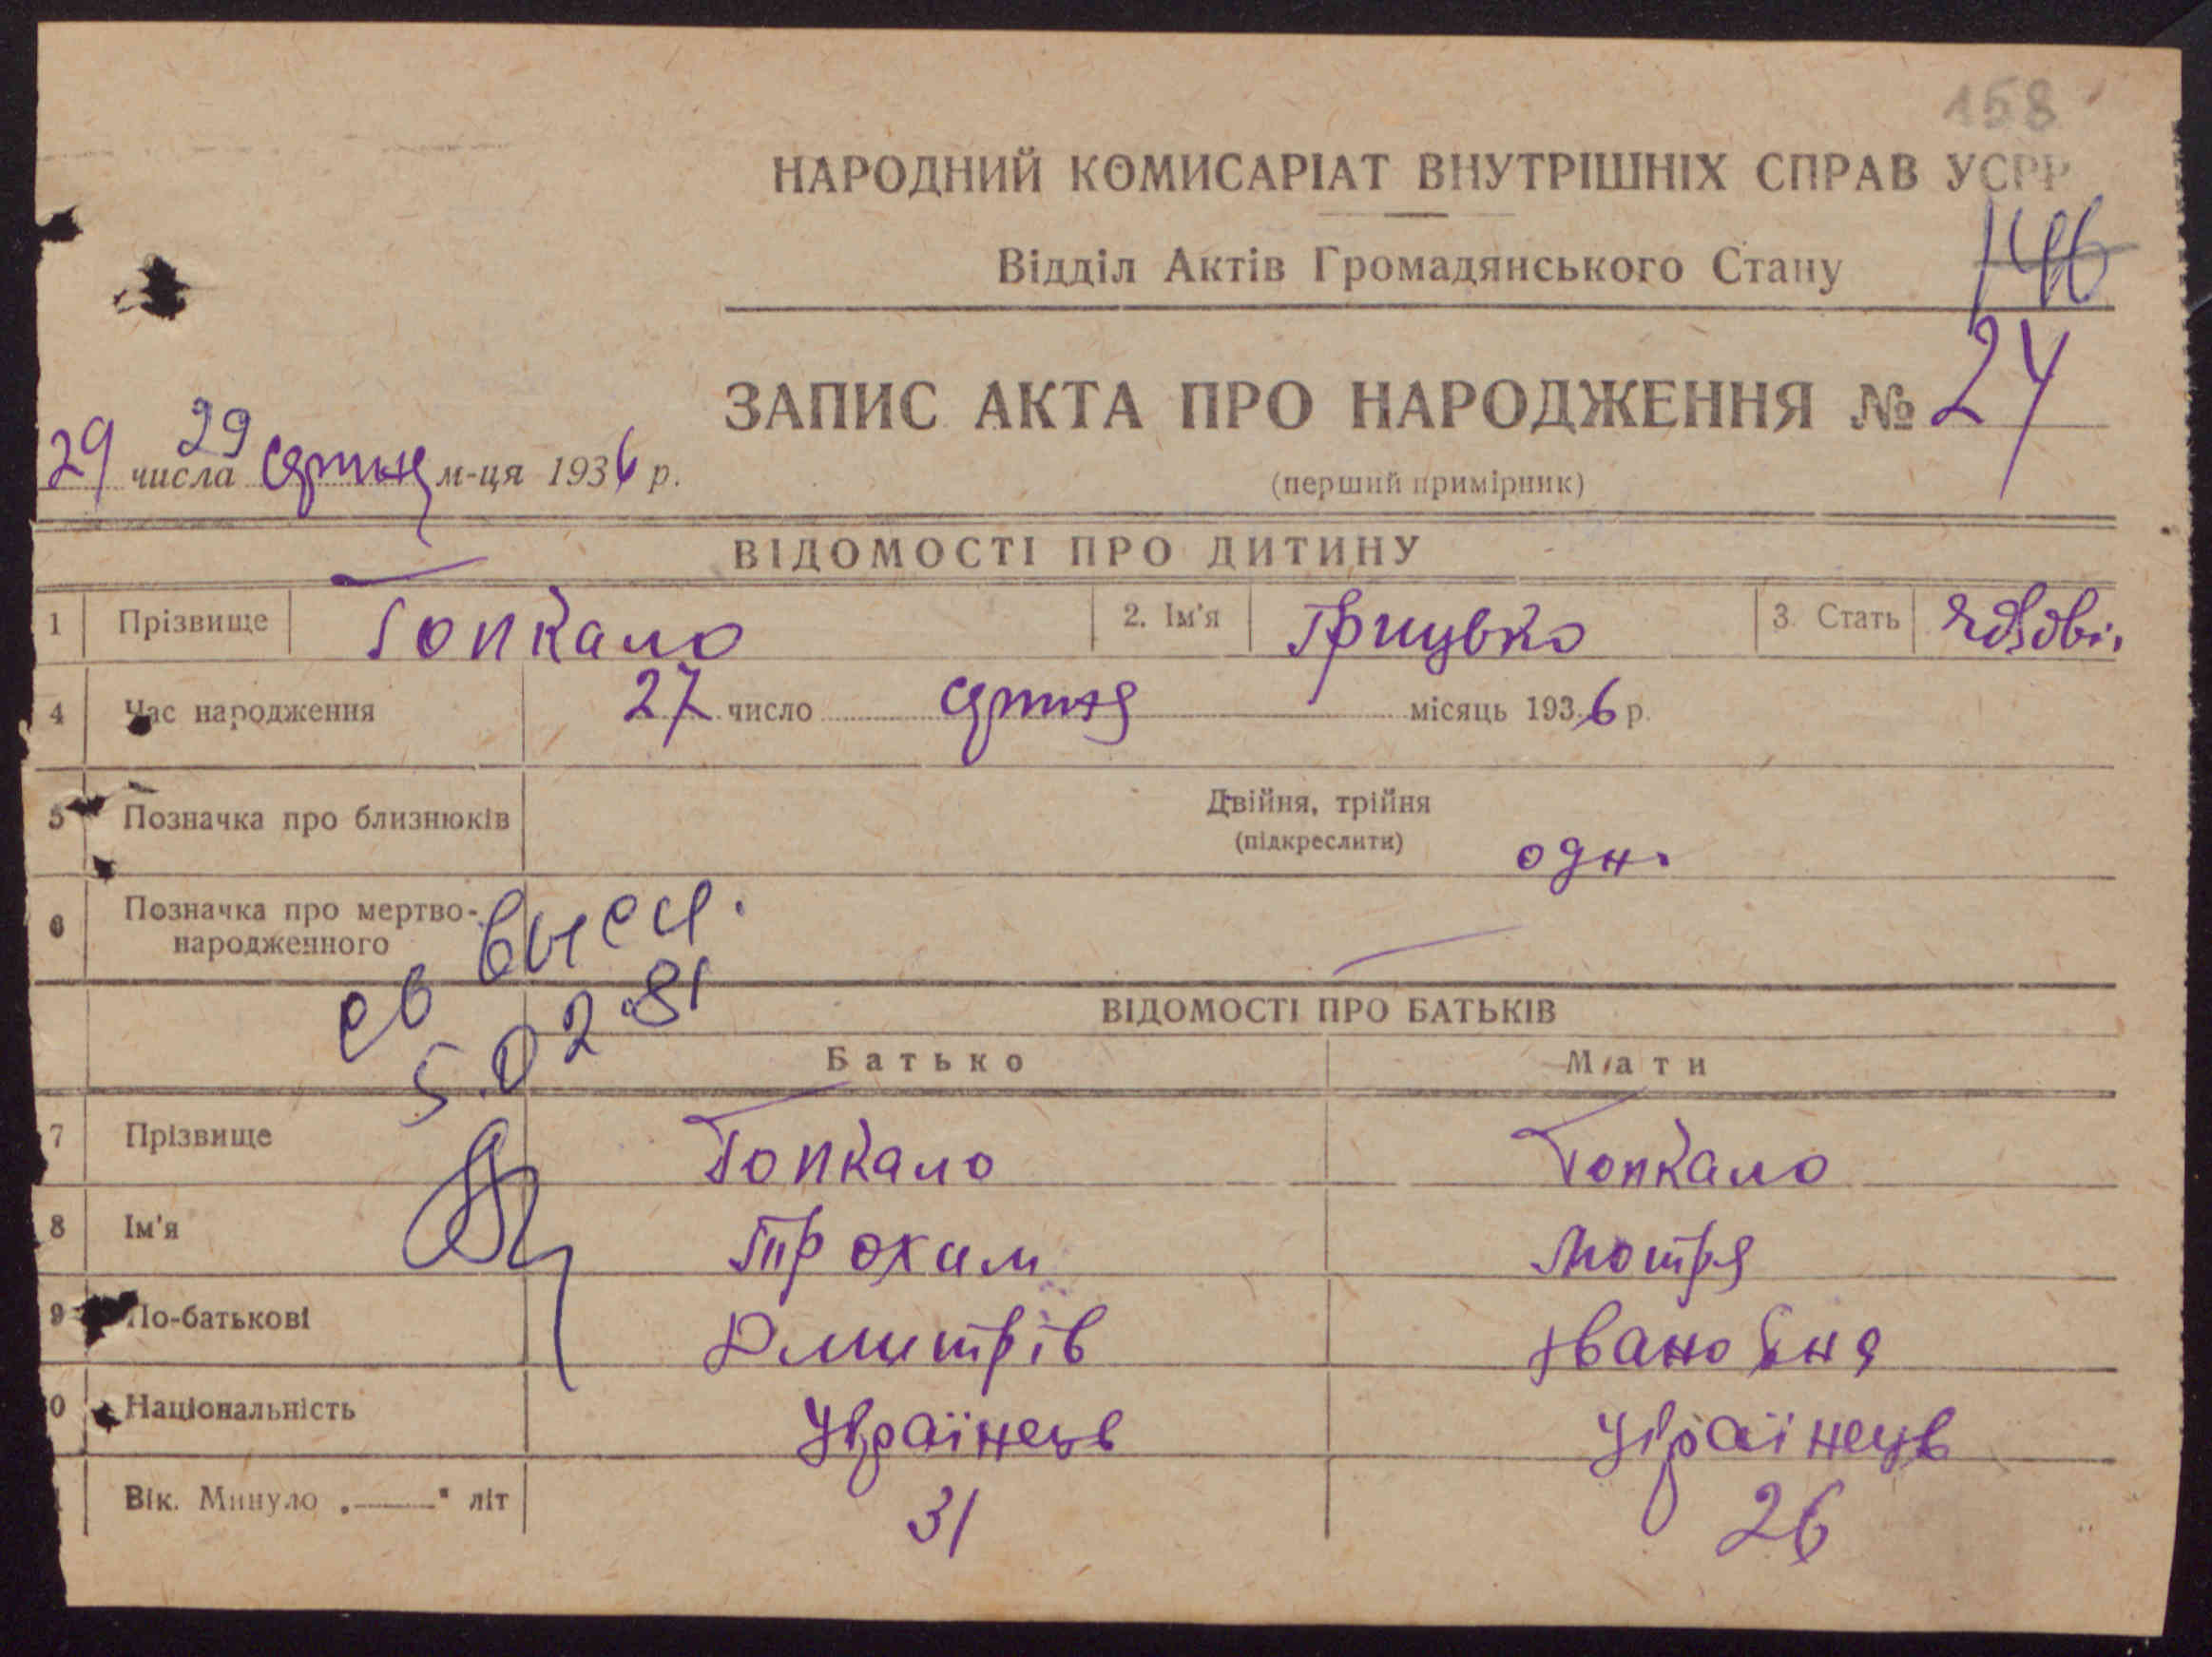 158
НАРОДНИЙ КОМИСАРІАТ ВНУТРІШНІХ СПРАВ УСРР
146
Відділ Актів Громадянського Стану
ЗАПИС АКТА ПРО НАРОДЖЕННЯ № 24
(перший примірник)
29
29 числа серпня м-ця 1936 р.
ВІДОМОСТІ ПРО ДИТИНУ
1 Прізвище Гопкало 2. Ім'я Грицько 3. Стать
4 Час народження 27 число серпня місяць 1936 р.
5 Позначка про близнюків Двійня, трійня
(підкреслити) одн.
6 Позначка про мертво-
народженного
св выел.
5.02.81
ВІДОМОСТІ ПРО БАТЬКІВ
Батько Мати
7 Прізвище Гопкало Гопкало
8 Ім'я Трохим Мотря
9 По-батькові Дмитрів Івановня
0 Національність Українець Українець
Вік. Минуло „——" літ 31 26